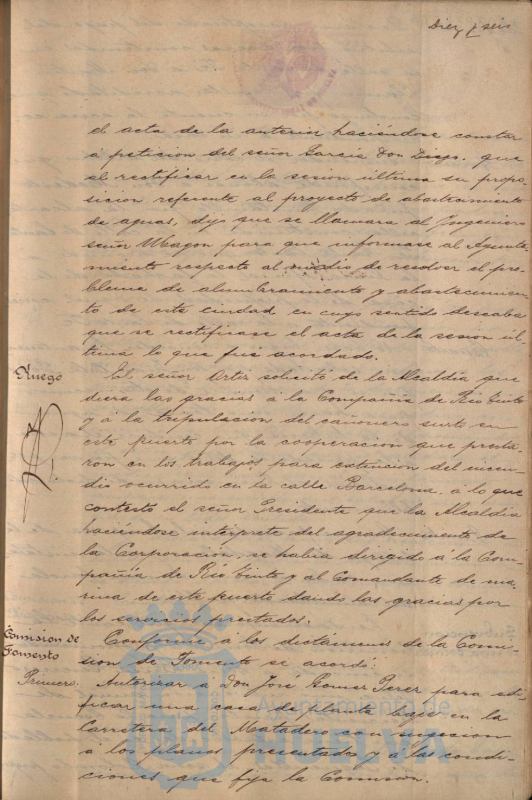 Diez y seis
el acta de la anterior haciéndose constar
á peticion del señor Garcia Don Diego, que
al rectificar en la sesion última su propo-
sicion referente al proyecto de abastecimiento
de aguas, dijo que se llamara al Ingeniero
señor para que informase al Ayunta-
miento respecto al medio de resolver el pro-
blema de alumbramiento y abastecimien-
to de esta ciudad en cuyo sentido deseaba
que se rectificase el acta de la sesion úl-
tima lo que fué acordado.
Ruego
El señor solicitó de la Alcaldia que
diera las gracias á la Compañia de Rio Tinto
y á la tripulacion del cañonero surto en
este puerto por la cooperacion que presta-
ron en los trabajos para extincion del incen-
dio ocurrido en la calle Barcelona, á lo que
contestó el señor Presidente que la Alcaldia
haciéndose intérprete del agradecimiento de
la Corporación, se habia dirigido á la Com-
pañia de Rio Tinto y al Comandante de ma-
rina de este puerto dando las gracias por
los servicios prestados.
Comision de
Fomento
Conforme á los dictámenes de la Comi-
sion de Fomento se acordó:
Primero:
Autorizar a Don José Gomez Perez para edi-
ficar una casa de planta baja en la
Carretera del Matadero con sugecion
á los planos presentados y á las condi-
ciones que fija la Comision.
Ayuntamiento de
HUELVA